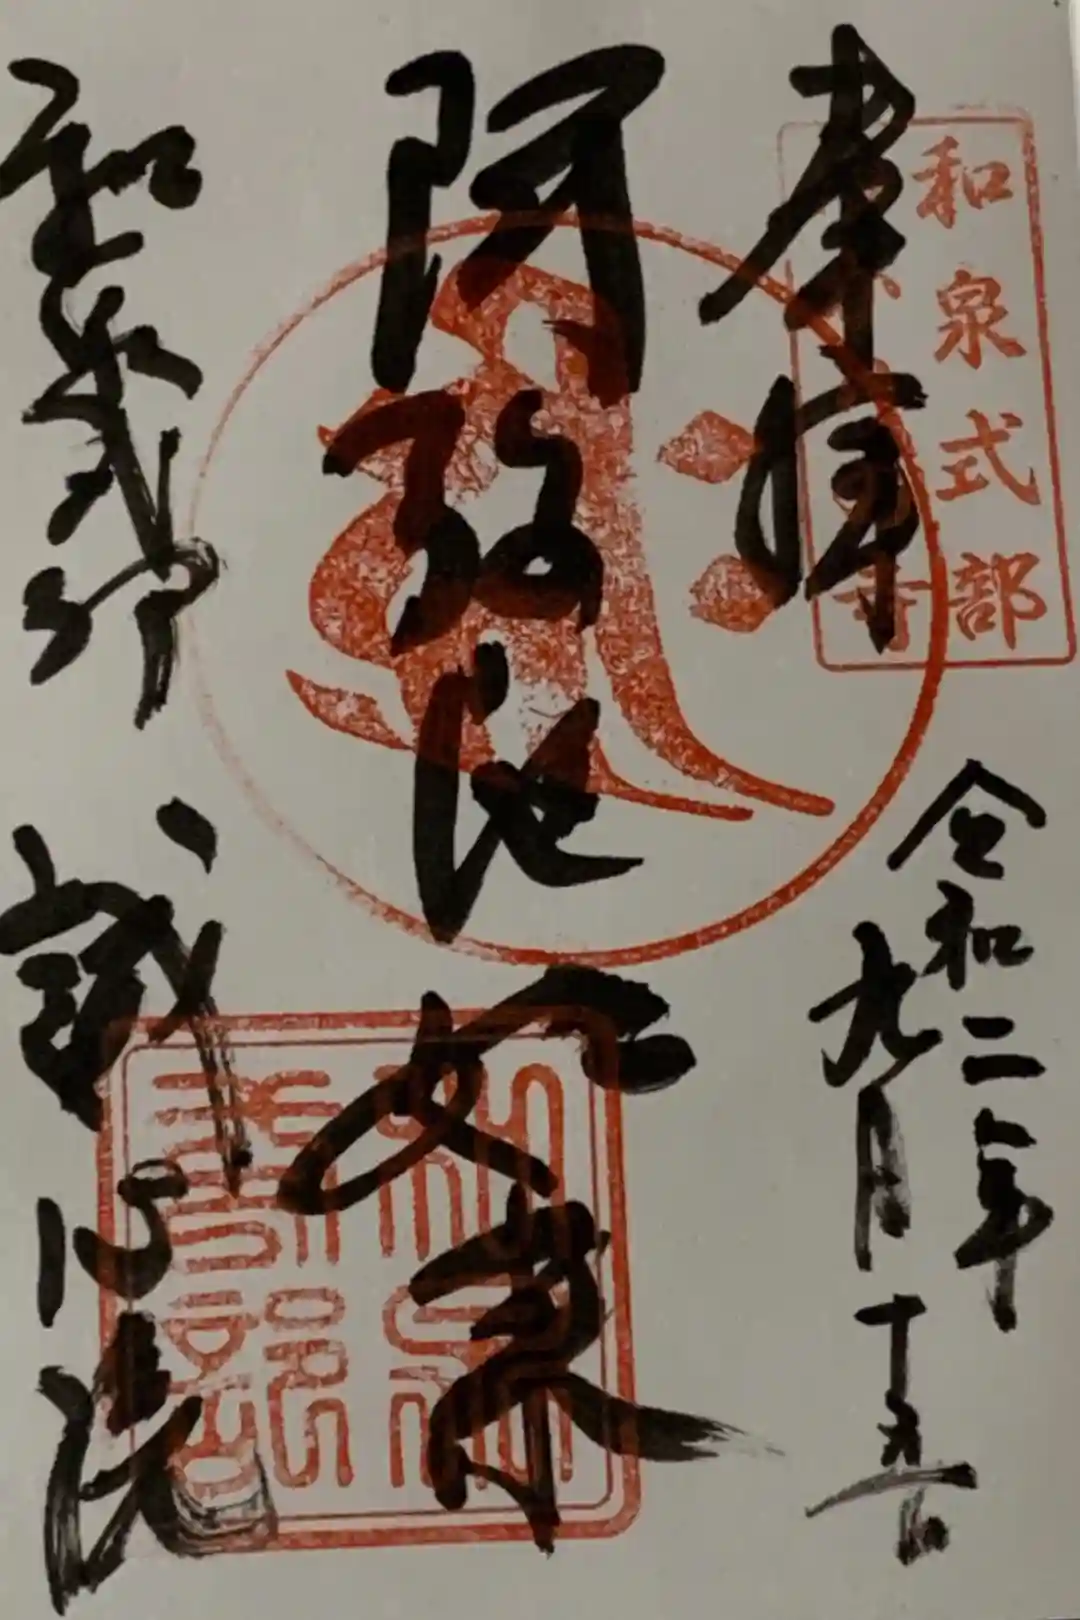 和泉式部
寺
奉拝
令和二年
九月十五日
阿弥陀如来
和泉式部 誠心院